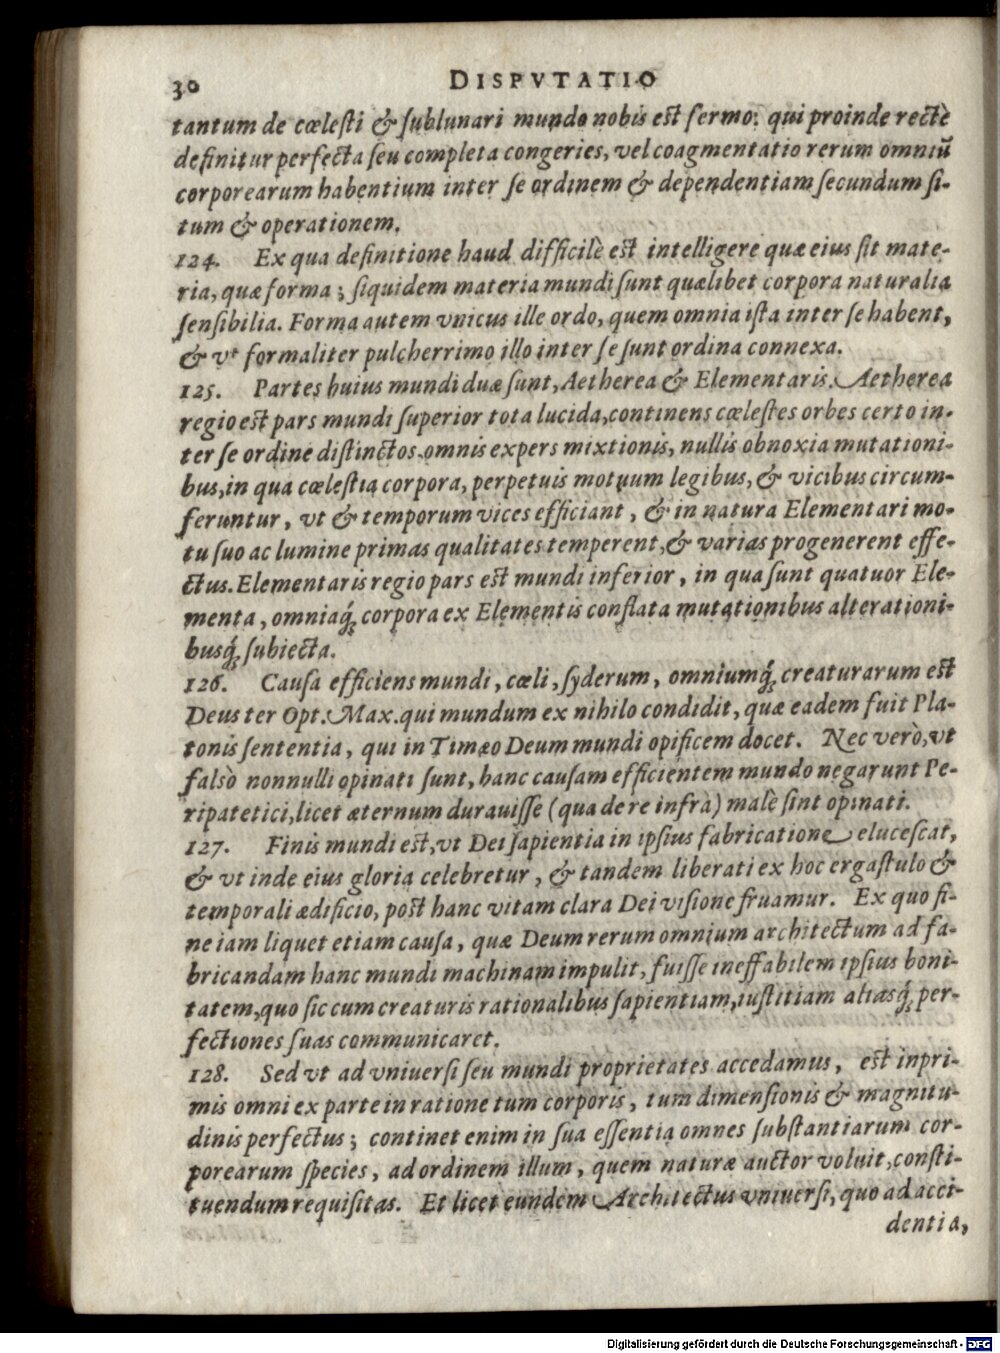 30 DISPVTATIO
tantum de cœlesti & sublunari mundo nobis est sermo: qui proinde rectè
definitur perfecta seu completa congeries, vel coagmentatio rerum omniũ
corporearum habentium inter se ordinem & dependentiam secundum si-
tum & operationem.
124. Ex qua definitione haud difficilè est intelligere quæ eius sit mate-
ria, quæ forma; siquidem materia mundi sunt quælibet corpora naturalia
sensibilia. Forma autem vnicus ille ordo, quem omnia ista inter se habent,
& vt formaliter pulcherrimo illo inter se sunt ordina connexa.
125. Partes huius mundi duæ sunt, Aetherea & Elementaris. Aetherea
regio est pars mundi superior tota lucida, continens cœlestes orbes certo in-
ter se ordine distinctos, omnis expers mixtionis, nullis obnoxia mutationi-
bus, in qua cœlestia corpora, perpetuis motuum legibus, & vicibus circum-
feruntur, vt & temporum vices efficiant, & in natura Elementari mo-
tu suo ac lumine primas qualitates temperent, & varias progenerent effe-
ctus. Elementaris regio pars est mundi inferior, in qua sunt quatuor Ele-
menta, omniaq́; corpora ex Elementis conflata mutationibus alterationi-
busq́; subiecta.
126. Causa efficiens mundi, cœli, syderum, omniumq́; creaturarum est
Deus ter Opt. Max. qui mundum ex nihilo condidit, quæ eadem fuit Pla-
tonis sententia, qui in Timæo Deum mundi opificem docet. Nec verò, vt
falsò nonnulli opinati sunt, hanc causam efficientem mundo negarunt Pe-
ripatetici, licet æternum durauisse (qua de re infrà) malè sint opinati.
127. Finis mundi est, vt Dei sapientia in ipsius fabricatione elucescat,
& vt inde eius gloria celebretur, & tandem liberati ex hoc ergastulo &
temporali ædificio, post hanc vitam clara Dei visione fruamur. Ex quo fi-
ne iam liquet etiam causa, quæ Deum rerum omnium architectum ad fa-
bricandam hanc mundi machinam impulit, fuisse ineffabilem ipsius boni-
tatem, quo sic cum creaturis rationalibus sapientiam, iustitiam aliasq́; per-
fectiones suas communicaret.
128. Sed vt ad vniuersi seu mundi proprietates accedamus, est inpri-
mis omni ex parte in ratione tum corporis, tum dimensionis & magnitu-
dinis perfectus; continet enim in sua essentia omnes substantiarum cor-
porearum species, ad ordinem illum, quem naturæ auctor voluit, consti-
tuendum requisitas. Et licet eundem Architectus vniuersi, quo ad acci-
dentia,
Digitalisierung gefördert durch die Deutsche Forschungsgemeinschaft - DFG